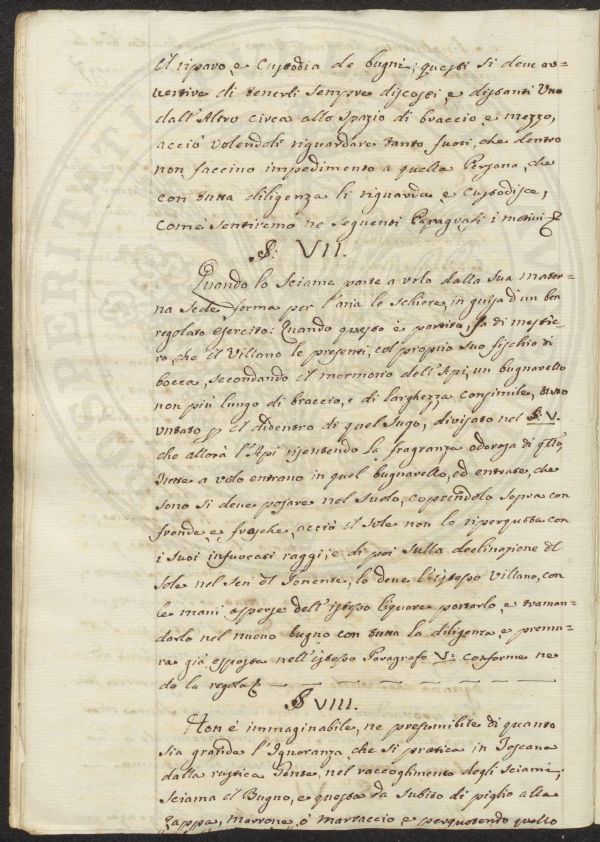 il riparo, e Custodia de bugni; questi si deve av=
vertire di tenerli sempre discosti, e distanti Uno
dall'Altro circa allo spazio di braccio, e mezzo,
acciò volendoli riguardare tanto fuori, che dentro
non faccino impedimento a quella Persona, che
con tutta diligenza li riguarda e Custodisce,
Come sentiremo ne seguenti Paragrafi i motivi
§: VII.
Quando lo Sciame parte a volo dalla sua mater=
na Sede, forma per l'aria le schiere, in guisa d'un ben
regolato esercito: Quando questo è partito, fa di mestie=
ro che il Villano le presenti, col proprio suo fischio di
bocca, secondando il mormorio dell'Api, un bugnarello
non più lungo di braccio, e di larghezza consimile, tutto
untato p il didentro di quel sugo, divisato nel §: V.
che allora l'Api risentendo la fragranza odorosa di qllo,
tutte a volo entrano in quel bugnarello, ed entrate, che
sono si deve posare nel suolo, coprendolo sopra con
fronde, e frasche, acciò il sole non lo ripercuota con
i suoi infuocati raggi; e di poi sulla declinazione dl
sole nel sen dl Ponente, lo deve l'istesso Villano, con
le mani asperse dell'istesso liquore portarlo, e traman=
darlo nel nuovo bugno con tutta la diligenza, e premu=
ra già esposta nell'istesso Paragrafo V: conforme ne
da la regola
§ VIII.
Non è immaginabile, ne presumibile di quanto
sia grande l'Ignoranza, che si pratica in Toscana
dalla rustica Gente, nel raccoglimento degli Sciami;
Sciama il Bugno, e questa da subito di piglio alla
Zappa, marrone, ò marraccio, e perquotendo quello